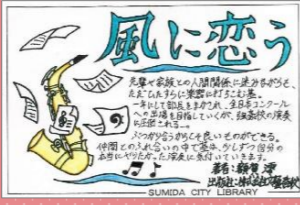 風に恋う
先輩や家族との人間関係に悩みながらも、
ただひたすらに楽器に打ちこむ基。
一年にして部長をまかされ、全日本コンクール
への出場を目指していくが、強豪校の演奏
に圧倒される…。
ぶつかり合うからこそ良いものができる。
仲間とのふれ合いの中で基は、少しずつ自分の
本当にやりたかった演奏に気付いていきます。
著者:額賀 澪
出版社:株式会社文藝春秋
SUMIDA CITY LIBRARY